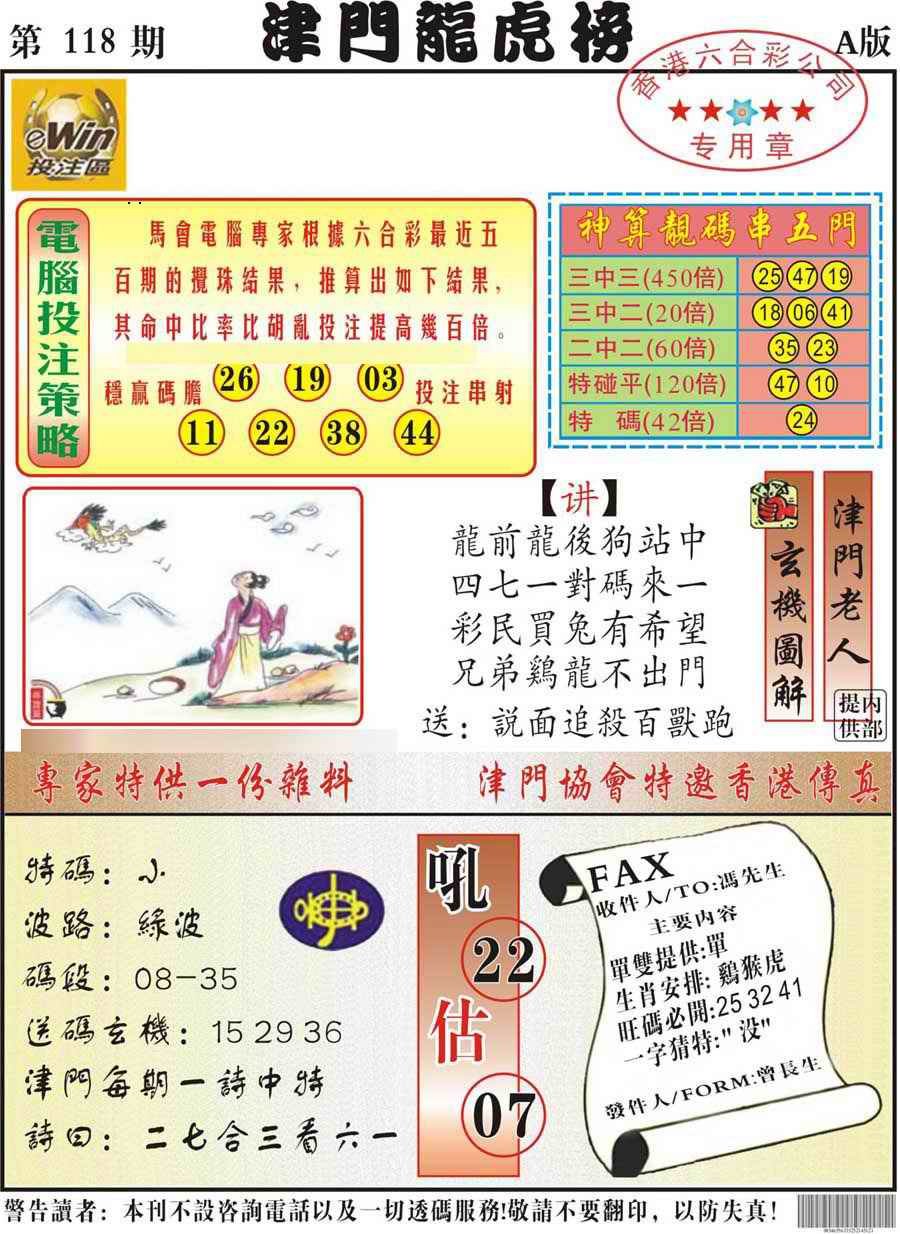 第 118 期
津門龍虎榜
A版
香港六合彩公司
专用章
eWin
投注區
電腦投注策略
馬會電腦專家根據六合彩最近五
百期的攪珠結果，推算出如下結果，
其命中比率比胡亂投注提高幾百倍。
穩贏碼膽 26 19 03 投注串射
11 22 38 44
神算靚碼串五門
三中三(450倍) 25 47 19
三中二(20倍) 18 06 41
二中二(60倍) 35 23
特碰平(120倍) 47 10
特 碼(42倍) 24
【讲】
龍前龍後狗站中
四七一對碼來一
彩民買兔有希望
兄弟鷄龍不出門
送：説面追殺百獸跑
玄機圖解
津門老人
内部
提供
專家特供一份雜料
津門協會特邀香港傳真
特碼：小
波路：綠波
碼段：08-35
送碼玄機：15 29 36
津門每期一詩中特
詩曰：二七合三看六一
吼
22
估
07
FAX
收件人/TO:馮先生
主要内容
單雙提供:單
生肖安排: 鷄猴虎
旺碼必開:25 32 41
一字猜特:"没"
發件人/FORM:曾長生
警告讀者：本刊不設咨詢電話以及一切透碼服務!敬請不要翻印，以防失真!